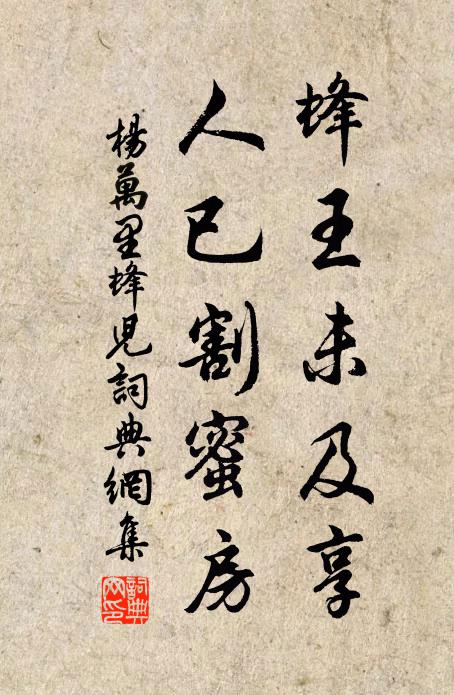 蜂王未及享
人已割蜜房
楊萬里蜂兒詞典網集
詞典網印